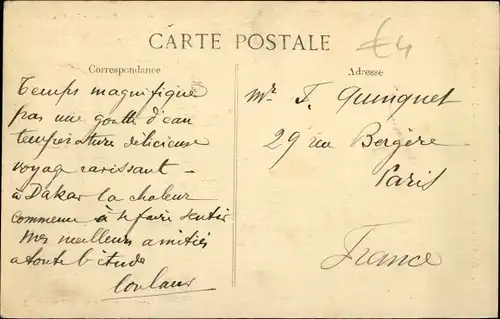 CARTE POSTALE
€4
Correspondance
Adresse
Temps magnifique
pas une goutte d'eau
température délicieuse
voyage ravissant -
à Dakar la chaleur
commence à se faire sentir
Mes meilleurs amitiés
a toute l'étude
Mr. F. Quinquet
29 rue Bergère
Paris
France